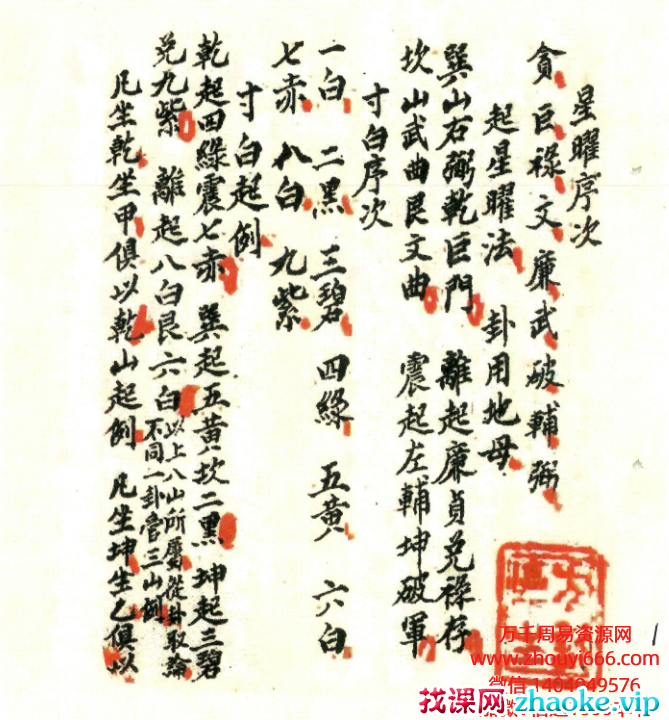 星曜序次
貪 巨 祿 文 廉 武 破 輔 弼
起星曜法 卦用地母
巽山右弼乾巨門 離起廉貞兌祿存
坎山武曲艮文曲 震起左輔坤破軍
寸白序次
一白 二黑 三碧 四綠 五黃 六白
七赤 八白 九紫
寸白起例
乾起四綠震七赤 巽起五黃坎二黑 坤起三碧
兌九紫 離起八白艮六白 以上八山所屬從卦取論
不同一卦管三山例
凡坐乾坐甲俱以乾山起例 凡坐坤坐乙俱以
1
万千周易资源网
www.zhouyi666.com
微信1404849576
找课网zhaoke.vip